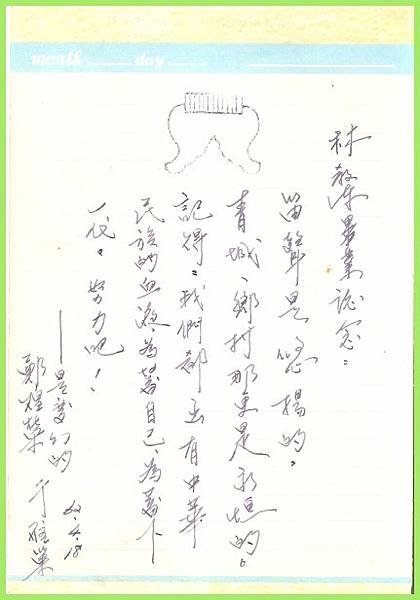 month day
畢業誌念。
笛聲是悠揚的。
青城、鄉村那更是永恆的。
記得：我們都有中華
民族的血液，為著自己、為著下
一代。努力吧！
——是幻的
鄭煌榮 于雅巢
62.4.18